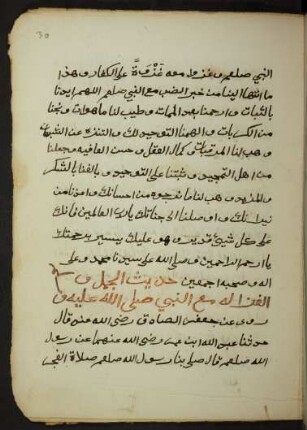 النبي صلعم و غزو له معه غزوة على الكفار و هذا
ما انتها الينا من خبر الضب مع النبي صلعم اللهم ايدنا
بالثبات و ارحمنا بعد الممات و طيب لنا ما هو ات و نجنا
من الكربات و الهمنا التوحيد لك و التنزه عن الشبهات
و هب لنا و كمال العقل و حسن العافيه و جعلنا
من اهل التمجيد و ثبتنا على التوحيد و بالشكر
و المزيد و هب لنا ما نرجوه من احسانك و امنا من
نيرانك و اوصلنا الى جناتك يا رب العالمين فانك
على كل شيئ قدير و هو عليك يسير برحمتك
يا ارحم الراحمين و صلى الله على سيدنا محمد و على
اله و صحبه اجمعين حديث الجمل و
الغزاله مع النبي صلى الله عليه و
روي عن جعفر الصادق رضي الله عنه قال
حدثنا عبد الله ابن عمر رضي الله عنهما عن رسول
الله صلعم قال صلى بنا رسول الله صلعم صلاة الفجر